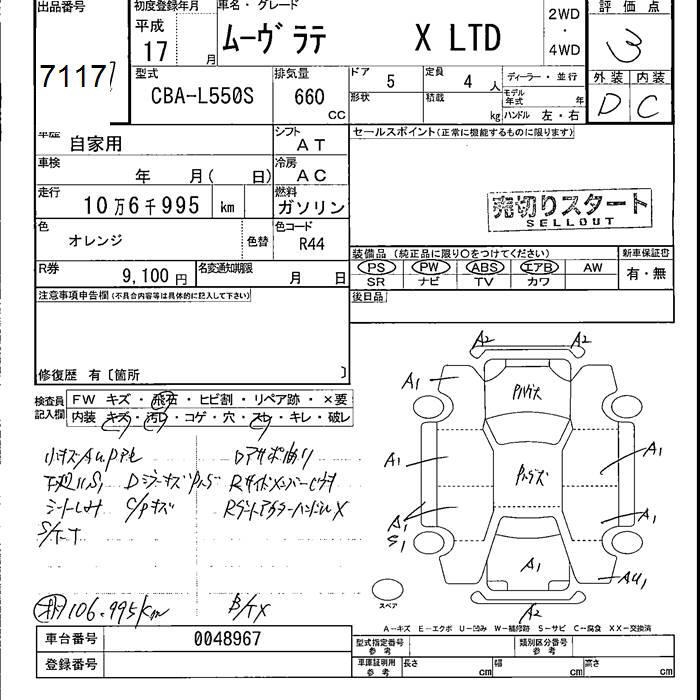 出品番号
初度登録年月
車名・グレード
評価点
平成
17 月
ムーヴ ラテ X LTD
2WD
・
4WD
3
71177
外装 内装
D C
型式
CBA-L550S
排気量
660
CC
ドア 5
定員 4 人
ディーラー・並行
形状
積載
kg
モデル
年式 年
ハンドル 左・右
車歴 自家用
シフト
AT
セールスポイント(正常に機能するものに限ります)
車検
年 月( 日)
冷房
AC
走行
10万6千995 km
燃料
ガソリン
売切りスタート
SELLOUT
色
オレンジ
色替
色コード
R44
装備品 (純正品に限り○をつけてください)
新車保証書
PS PW ABS エアB AW
有・無
R券
9,100円
名変通知期限
月 日
SR ナビ TV カワ
後日品
注意事項申告欄(不具合内容等は具体的に記入して下さい)
修復歴 有〔箇所 〕
検査員
記入欄
FW キズ・飛石・ヒビ割・リペア跡・×要
内装 キズ・汚レ・コゲ・穴・スレ・キレ・破レ
小キズAU
シートしみ
C/Pキズ
106.995km
A2 A2
A1
A1
A1
S1
A1
A1
A1
AU1
A2
スペア
A-キズ E-エクボ U-凹み W-補修跡 S-サビ C-腐食 XX-交換済
車台番号 0048967
型式指定番号
参考
類別区分番号
参考
登録番号
車庫証明用
参考
長さ cm
幅 cm
高さ cm